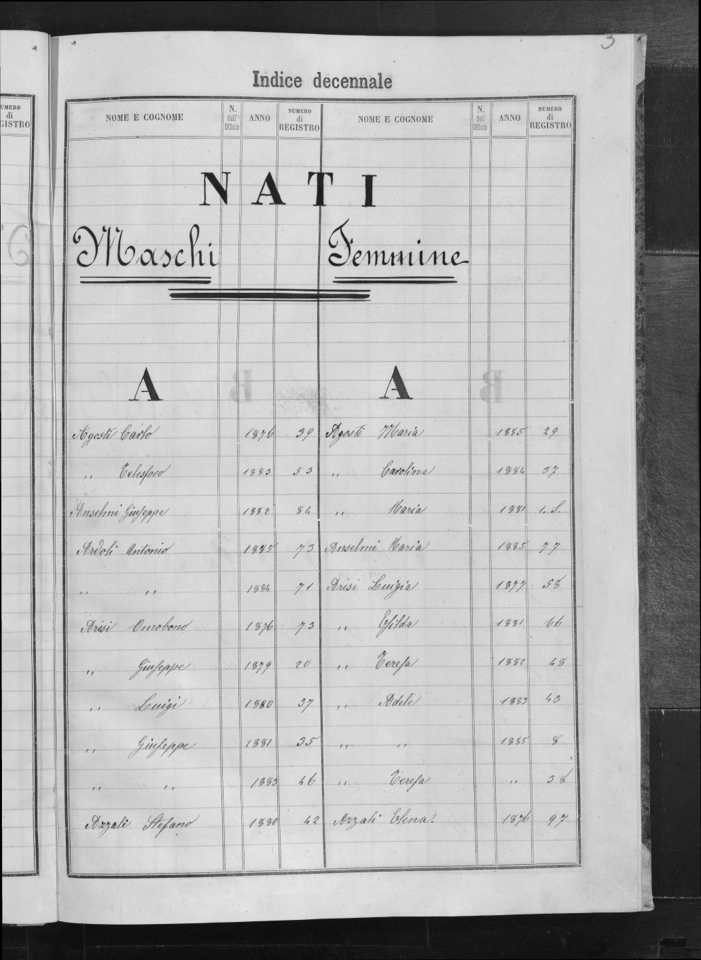 3
Indice decennale
NOME E COGNOME N. dell' Ufficio ANNO NUMERO di REGISTRO NOME E COGNOME N. dell' Ufficio ANNO NUMERO di REGISTRO
NATI
Maschi Femmine
A A
Agosti Carlo 1876 39 Agosti Maria 1885 29
" Telesforo 1883 53 " Carolina 1884 37
Anselmi Giuseppe 1882 84 " Maria 1881
Ardoli Antonio 1885 73 Anselmi Maria 1885 77
" " 1884 71 Arisi Luigia 1877 58
Arisi Omobono 1876 73 " Esilda 1881 66
" Giuseppe 1879 20 " Teresa 1882 48
" Luigi 1880 37 " Adele 1883 43
" Giuseppe 1881 35 " " 1885 8
" " 1883 46 " Teresa " 38
Azzali Stefano 1880 42 Azzali Elena. 1876 97
NUMERO
di
REGISTRO